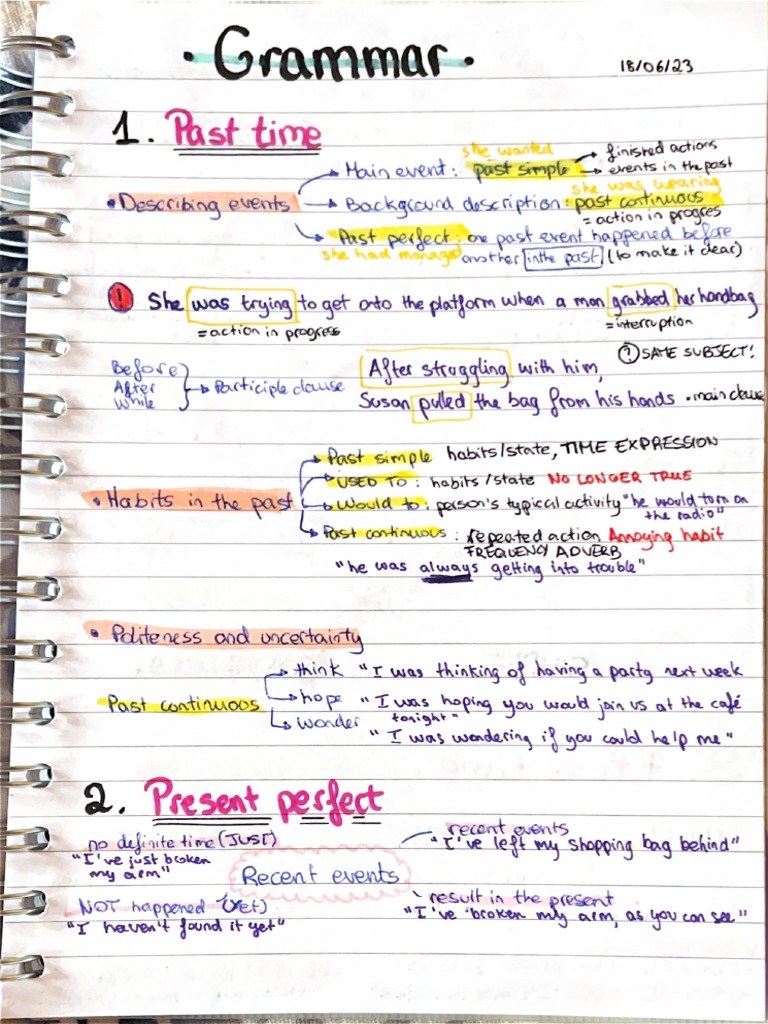 · Grammar ·
18/06/23
1. Past time
• Describing events
she wanted
Main event: past simple → finished actions
→ events in the past
she was wearing
Background description: past continuous
= action in progres
Past perfect: one past event happened before
she had managed another in the past (to make it clear)
! She was trying to get onto the platform when a man grabbed her handbag
= action in progress
= interruption
Before
After
While
→ Participle clause
! SAME SUBJECT!
After struggling with him,
Susan pulled the bag from his hands • main clause
• Habits in the past
Past simple habits/state, TIME EXPRESSION
USED TO: habits/state NO LONGER TRUE
Would to: person's typical activity "he would turn on
the radio"
Past continuous: repeated action Annoying habit
FREQUENCY ADVERB
"he was always getting into trouble"
• Politeness and uncertainty
Past continuous
think "I was thinking of having a party next week
hope "I was hoping you would join us at the café
tonight"
wonder
"I was wondering if you could help me"
2. Present perfect
no definite time (JUST)
"I've just broken
my arm"
recent events
"I've left my shopping bag behind"
Recent events
NOT happened (Yet)
"I haven't found it yet"
result in the present
"I've broken my arm, as you can see"